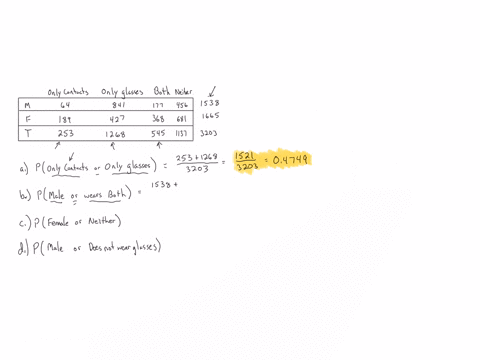 Only Contacts Only glasses Both Neither
M 64 841 177 456 1538
F 189 427 368 681 1665
T 253 1268 545 1137 3203
a.) P(Only Contacts or Only glasses) = 253+1268/3203 = 1521/3203 = 0.4749
b.) P(Male or wears Both) = 1538 +
c.) P(Female or Neither)
d.) P(Male or Does not wear glasses)